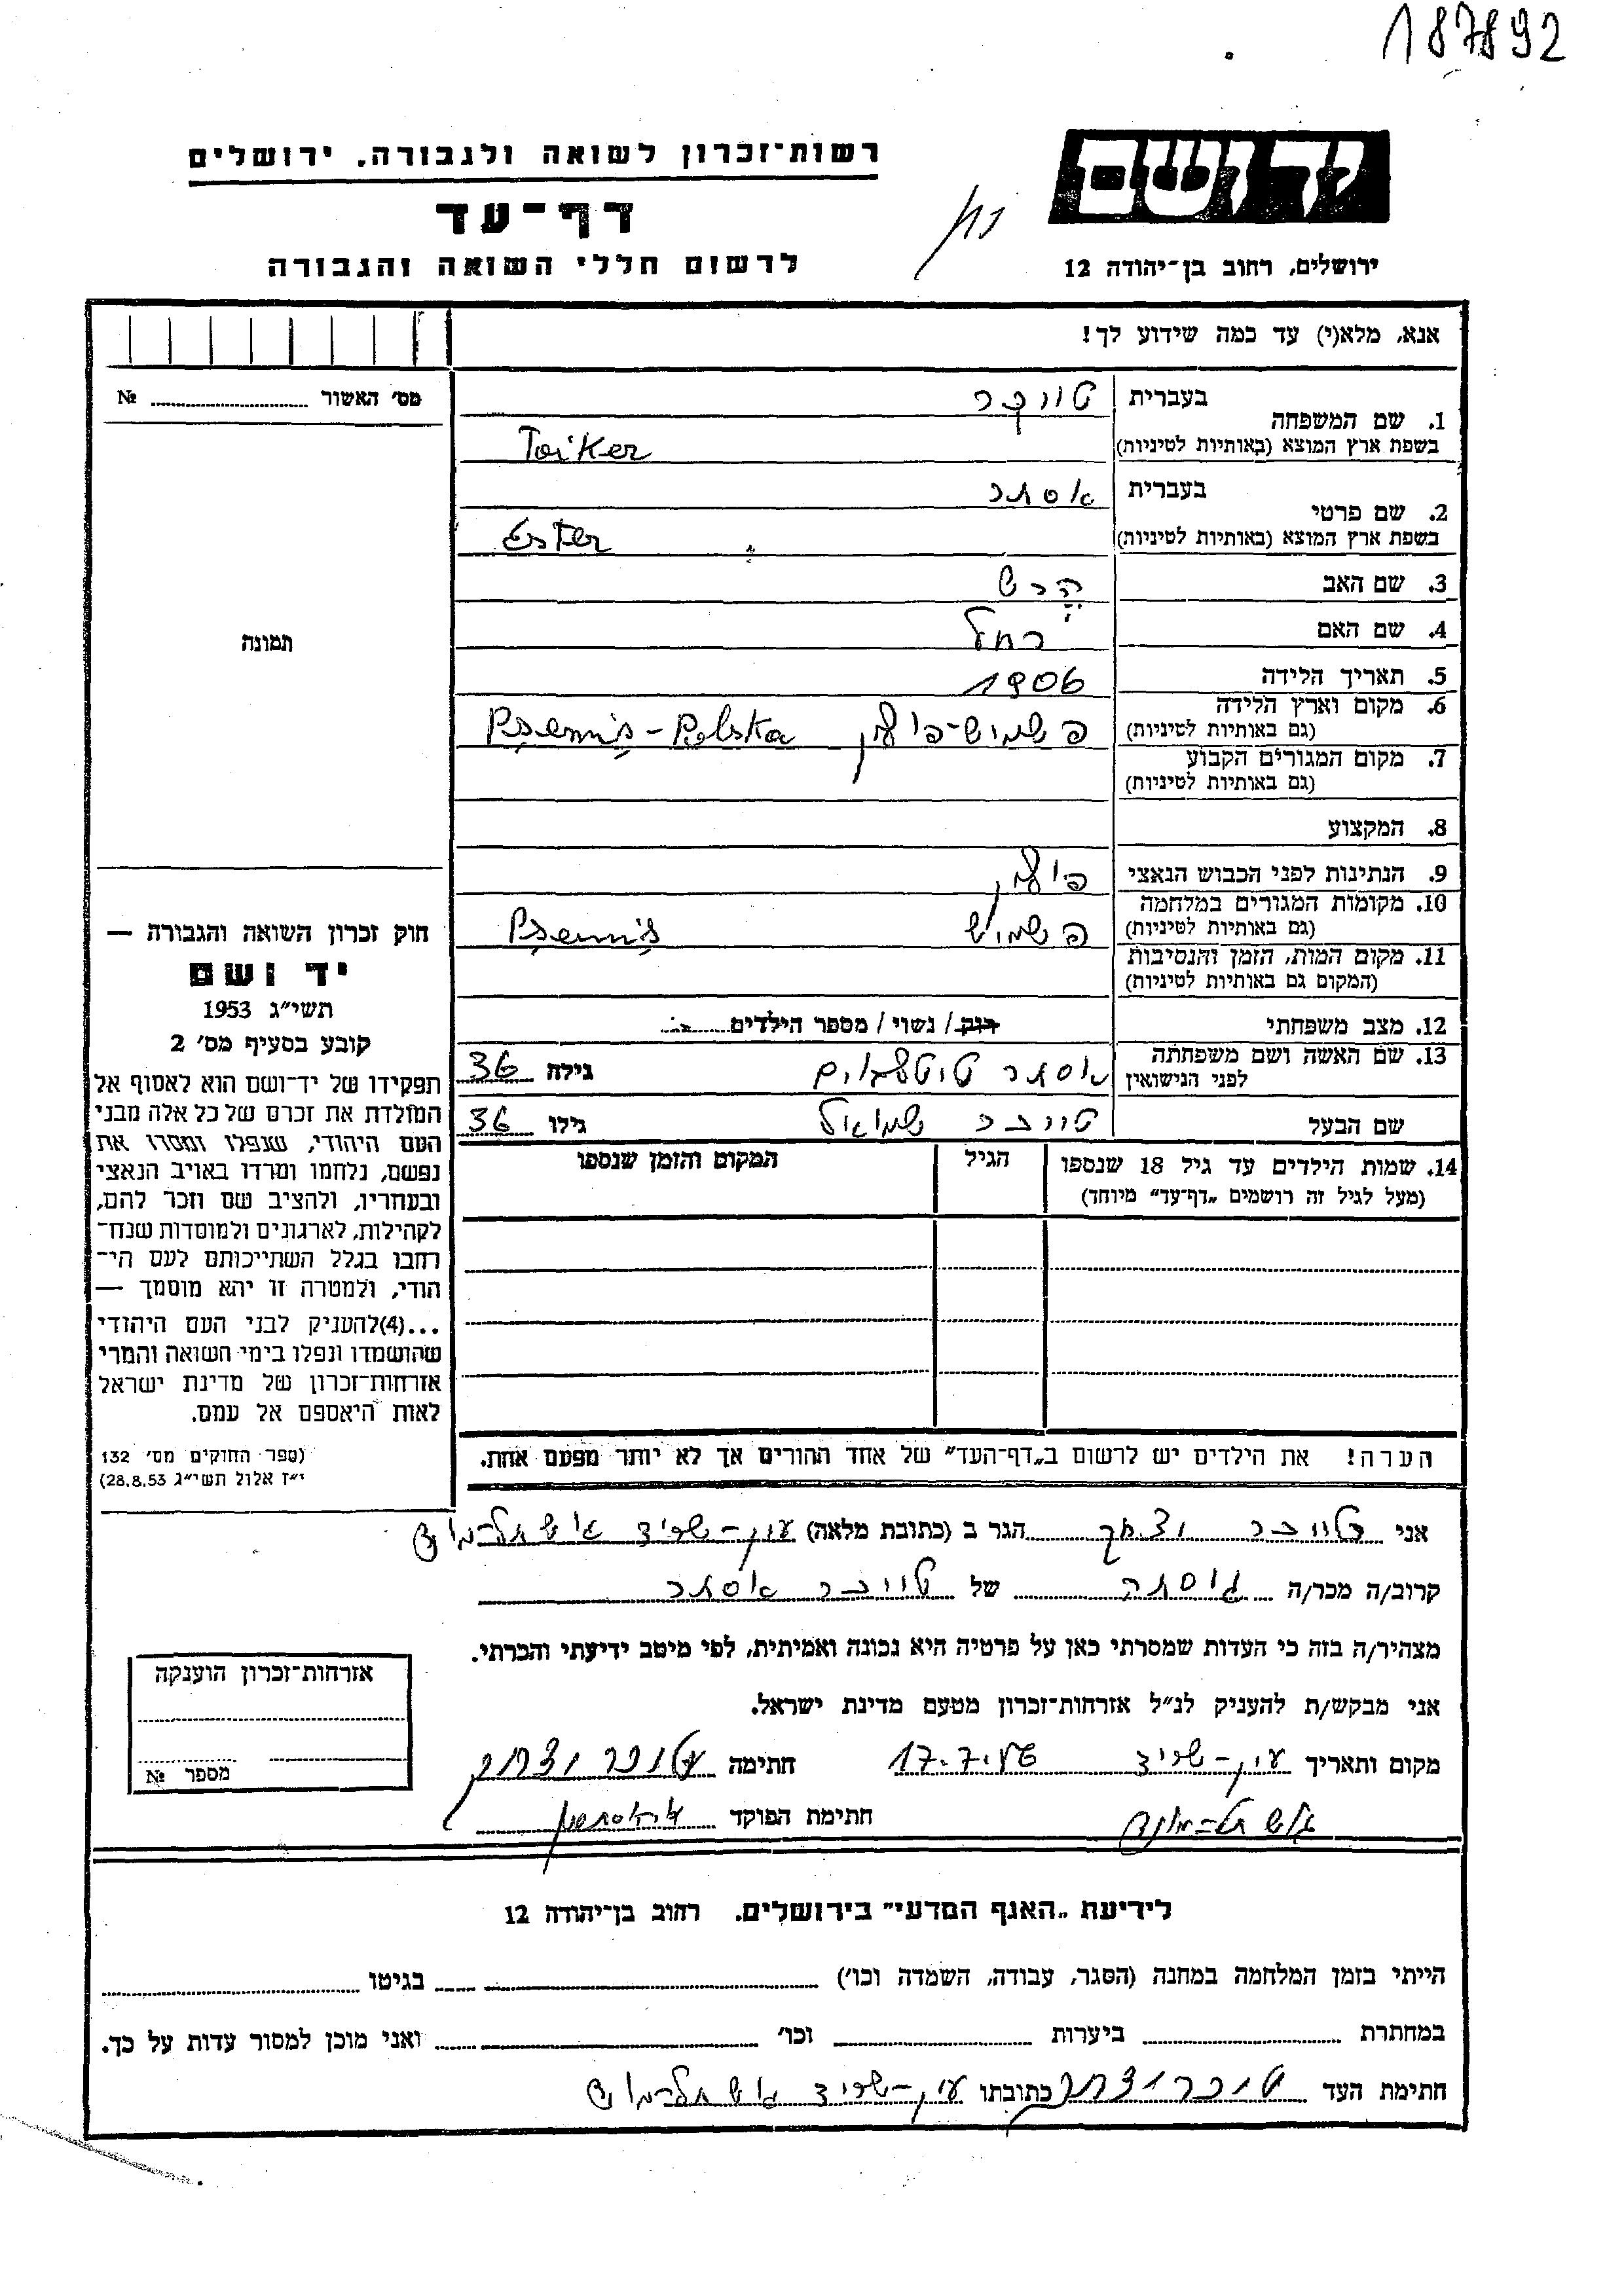 187892
יד ושם
רשות־זכרון לשואה ולגבורה. ירושלים
דף־עד
לרשום חללי השואה והגבורה
ירושלים, רחוב בן־יהודה 12
אנא, מלא(י) עד כמה שידוע לך!
מס׳ האשור № 
1. שם המשפחה בעברית טויכר
בשפת ארץ המוצא (באותיות לטיניות) Toiker
2. שם פרטי בעברית אסתר
בשפת ארץ המוצא (באותיות לטיניות) Ester
3. שם האב הרש
4. שם האם רחל
5. תאריך הלידה 1906
6. מקום וארץ הלידה
(גם באותיות לטיניות) פשמיש־פולין Psemiś - Polska
7. מקום המגורים הקבוע
(גם באותיות לטיניות)
8. המקצוע
9. הנתינות לפני הכבוש הנאצי פולין
10. מקומות המגורים במלחמה
(גם באותיות לטיניות) פשמיש Psemiś
11. מקום המות, הזמן והנסיבות
(המקום גם באותיות לטיניות)
12. מצב משפחתי רוק / נשוי / מספר הילדים
13. שם האשה ושם משפחתה
לפני הנישואין אסתר טיטלבוים גילה 36
שם הבעל טויכר שמואל גילו 36
14. שמות הילדים עד גיל 18 שנספו הגיל המקום והזמן שנספו
(מעל לגיל זה רושמים „דף־עד״ מיוחד)
הערה! את הילדים יש לרשום ב„דף־העד״ של אחד ההורים אך לא יותר מפעם אחת.
תמונה
חוק זכרון השואה והגבורה —
יד ושם
תשי״ג 1953
קובע בסעיף מס׳ 2
תפקידו של יד־ושם הוא לאסוף אל
המולדת את זכרם של כל אלה מבני
העם היהודי, שנפלו ומסרו את
נפשם, נלחמו ומרדו באויב הנאצי
ובעוזריו, ולהציב שם וזכר להם,
לקהילות, לארגונים ולמוסדות שנח־
רחבו בגלל השתייכותם לעם הי־
הודי, ולמטרה זו יהא מוסמך —
...(4)להעניק לבני העם היהודי
שהושמדו ונפלו בימי השואה והמרי
אזרחות־זכרון של מדינת ישראל
לאות היאספם אל עמם.
(ספר החוקים מס׳ 132
י״ז אלול תשי״ג 28.8.53)
אני טויכר יצחק הגר ב (כתובת מלאה) עין-שריד
קרוב/ה מכר/ה גיסתה של טויכר אסתר
מצהיר/ה בזה כי העדות שמסרתי כאן על פרטיה היא נכונה ואמיתית, לפי מיטב ידיעתי והכרתי.
אני מבקש/ת להעניק לנ״ל אזרחות־זכרון מטעם מדינת ישראל.
מקום ותאריך עין-שריד 17.7.56 חתימה טויכר יצחק
חתימת הפוקד
אזרחות־זכרון הוענקה
מספר №
לידיעת „האגף המדעי״ בירושלים. רחוב בן־יהודה 12
הייתי בזמן המלחמה במחנה (הסגר, עבודה, השמדה וכו׳) בגיטו
במחתרת ביערות וכו׳ ואני מוכן למסור עדות על כך.
חתימת העד טויכר יצחק כתובתו עין-שריד